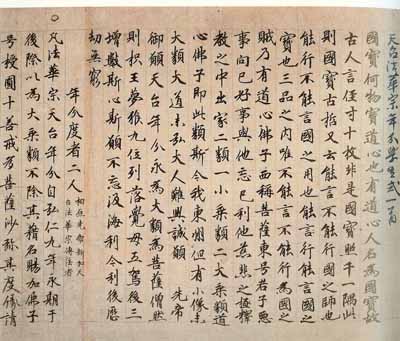 天台法華宗年分學生式一首
國寶何物寶道心也有道心人名為國寶故
古人言徑寸十枚非是國寶照千一隅此
國寶古哲又云能言不能行國之師也
能行不能言國之用也能行能言國之
寶也三品之内唯不能言不能行為國之
賊乃有道心佛子西稱菩薩東号君子惡
事向己好事與他忘己利他慈悲之極釋
教之中出家二類一小乘類二大乘類道
心佛子即此類斯今我東州但有小像未
大類大道未弘大人難興誠願 先帝
御願天台年分永為大類為菩薩僧然
則枳王夢猴九位列落覺母五駕後三
增數斯心斯願不忘汲海利今利後歷
劫無窮
年分度者二人 柏原先帝新加天
台法華宗傳法者
○凡法華宗天台年分自弘仁九年永期于
後際以為大乘類不除其籍名賜加佛子
号授圓十善戒為菩薩沙弥其度緣請